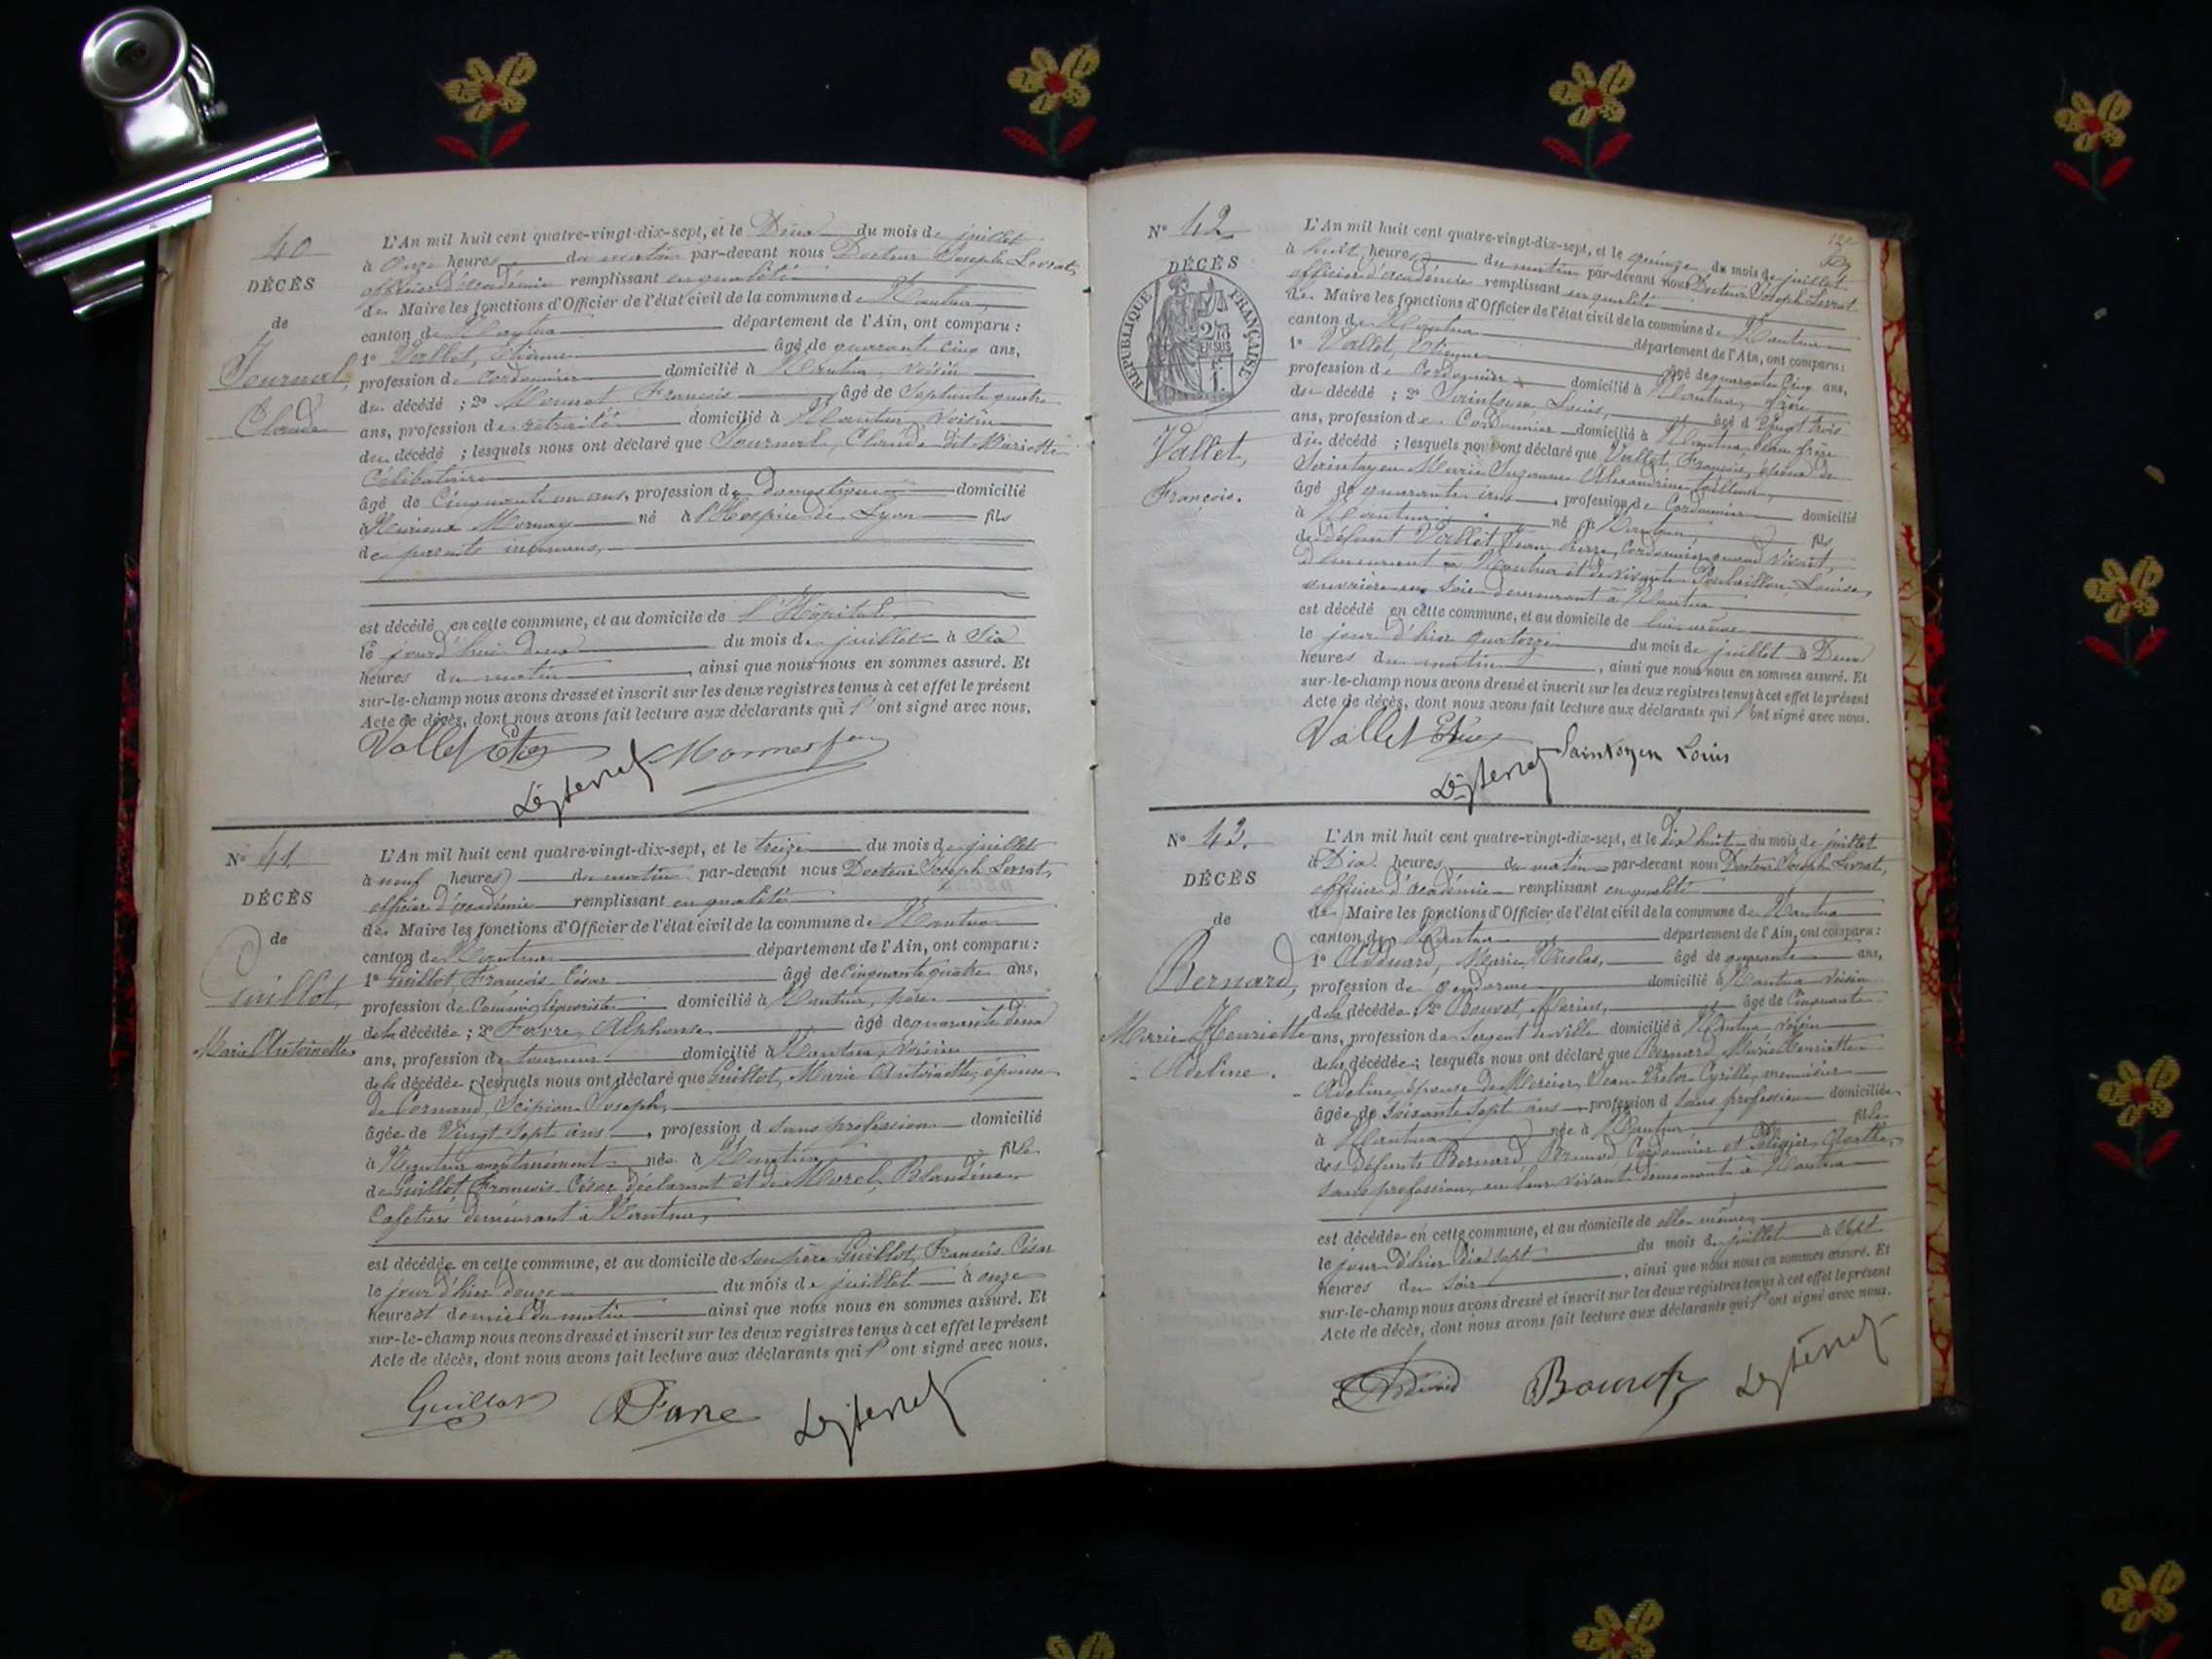 40
DÉCÈS
de
Journal,
Claude
L'An mil huit cent quatre-vingt-dix-sept, et le Deux du mois de juillet
à Onze heures du matin par-devant nous Docteur Joseph Levrat,
officier d'académie remplissant en qualité
de Maire les fonctions d'Officier de l'état civil de la commune de Nantua
canton de Nantua département de l'Ain, ont comparu :
1º Vallet, Etienne âgé de quarante cinq ans,
profession de Cordonnier domicilié à Nantua, voisin
du décédé ; 2º François âgé de Septante quatre
ans, profession de retraité domicilié à Nantua, voisin
du décédé ; lesquels nous ont déclaré que Journal, Claude dit Mariette
Célibataire
âgé de Cinquante un ans, profession de domestique domicilié
à Mornay né à l'Hospice de Lyon fils
de parents inconnus,
est décédé en cette commune, et au domicile de l'Hôpital,
le jourd'hui deux du mois de juillet à Six
heures du matin, ainsi que nous nous en sommes assuré. Et
sur-le-champ nous avons dressé et inscrit sur les deux registres tenus à cet effet le présent
Acte de décès, dont nous avons fait lecture aux déclarants qui l'ont signé avec nous.
Vallet
Nº 41
DÉCÈS
de
Guillot,
Marie Antoinette
L'An mil huit cent quatre-vingt-dix-sept, et le treize du mois de juillet
à neuf heures du matin par-devant nous Docteur Joseph Levrat,
officier d'académie remplissant en qualité
de Maire les fonctions d'Officier de l'état civil de la commune de Nantua
canton de Nantua département de l'Ain, ont comparu :
1º Guillot, François César âgé de Cinquante quatre ans,
profession de liquoriste domicilié à Nantua, père
de la décédée ; 2º Favre, Alphonse âgé de quarante deux
ans, profession de tourneur domicilié à Nantua, voisin
de la décédée lesquels nous ont déclaré que Guillot, Marie Antoinette, épouse
de Cornand, Scipion Joseph,
âgée de Vingt sept ans, profession d sans profession domicilié
à Nantua momentanément née à Nantua fille
de Guillot François César déclarant et de Morel, Blandine
Cafetiers demeurant à Nantua,
est décédée en cette commune, et au domicile de son père Guillot, François César
le jour d'hier douze du mois de juillet à onze
heures et demie du matin ainsi que nous nous en sommes assuré. Et
sur-le-champ nous avons dressé et inscrit sur les deux registres tenus à cet effet le présent
Acte de décès, dont nous avons fait lecture aux déclarants qui l'ont signé avec nous.
Guillot
Nº 42
DÉCÈS
RÉPUBLIQUE FRANÇAISE
Vallet,
François.
L'An mil huit cent quatre-vingt-dix-sept, et le quinze du mois de juillet
à huit heures du matin par-devant nous Docteur Joseph Levrat
officier d'académie remplissant en qualité
de Maire les fonctions d'Officier de l'état civil de la commune de Nantua
canton de Nantua département de l'Ain, ont comparu :
1º Vallet, Etienne âgé de quarante cinq ans,
profession de Cordonnier domicilié à Nantua, frère
du décédé ; 2º Saintoyen, Louis, âgé d Vingt trois
ans, profession de Cordonnier domicilié à Nantua beau frère
du décédé ; lesquels nous ont déclaré que Vallet, François, époux de
Saintoyen Marie Suzanne Alexandrine
âgé de quarante ans, profession de Cordonnier domicilié
à Nantua né à Nantua, fils
de défunt Vallet, Jean Pierre, Cordonnier quand vivait,
demeurant à Nantua et de vivante Louise,
ouvrière en soie demeurant à Nantua
est décédé en cette commune, et au domicile de lui-même
le jour d'hier quatorze du mois de juillet à Deux
heures du matin, ainsi que nous nous en sommes assuré. Et
sur-le-champ nous avons dressé et inscrit sur les deux registres tenus à cet effet le présent
Acte de décès, dont nous avons fait lecture aux déclarants qui l'ont signé avec nous.
Vallet
Saintoyen Louis
Nº 43.
DÉCÈS
de
Bernard,
Marie Henriette
Adeline.
L'An mil huit cent quatre-vingt-dix-sept, et le Dix huit du mois de juillet
à Dix heures du matin par-devant nous Docteur Joseph Levrat,
officier d'académie remplissant en qualité
de Maire les fonctions d'Officier de l'état civil de la commune de Nantua
canton de Nantua département de l'Ain, ont comparu :
1º Marie Nicolas, âgé de quarante ans,
profession de gendarme domicilié à Nantua voisin
de la décédée, 2º Bouvet, Marius, âgé de Cinquante
ans, profession de Sergent de ville domicilié à Nantua voisin
de la décédée ; lesquels nous ont déclaré que Bernard, Marie Henriette
Adeline, épouse de Mercier, Jean Victor Cyrille, menuisier
âgée de soixante sept ans, profession d sans profession domiciliée
à Nantua née à Nantua fille
des défunts Bernard, Cordonnier et Agathe,
sans profession, en leur vivant demeurant à Nantua
est décédée en cette commune, et au domicile de elle-même,
le jour d'hier Dix sept du mois de juillet à Sept
heures du soir, ainsi que nous nous en sommes assuré. Et
sur-le-champ nous avons dressé et inscrit sur les deux registres tenus à cet effet le présent
Acte de décès, dont nous avons fait lecture aux déclarants qui l'ont signé avec nous.